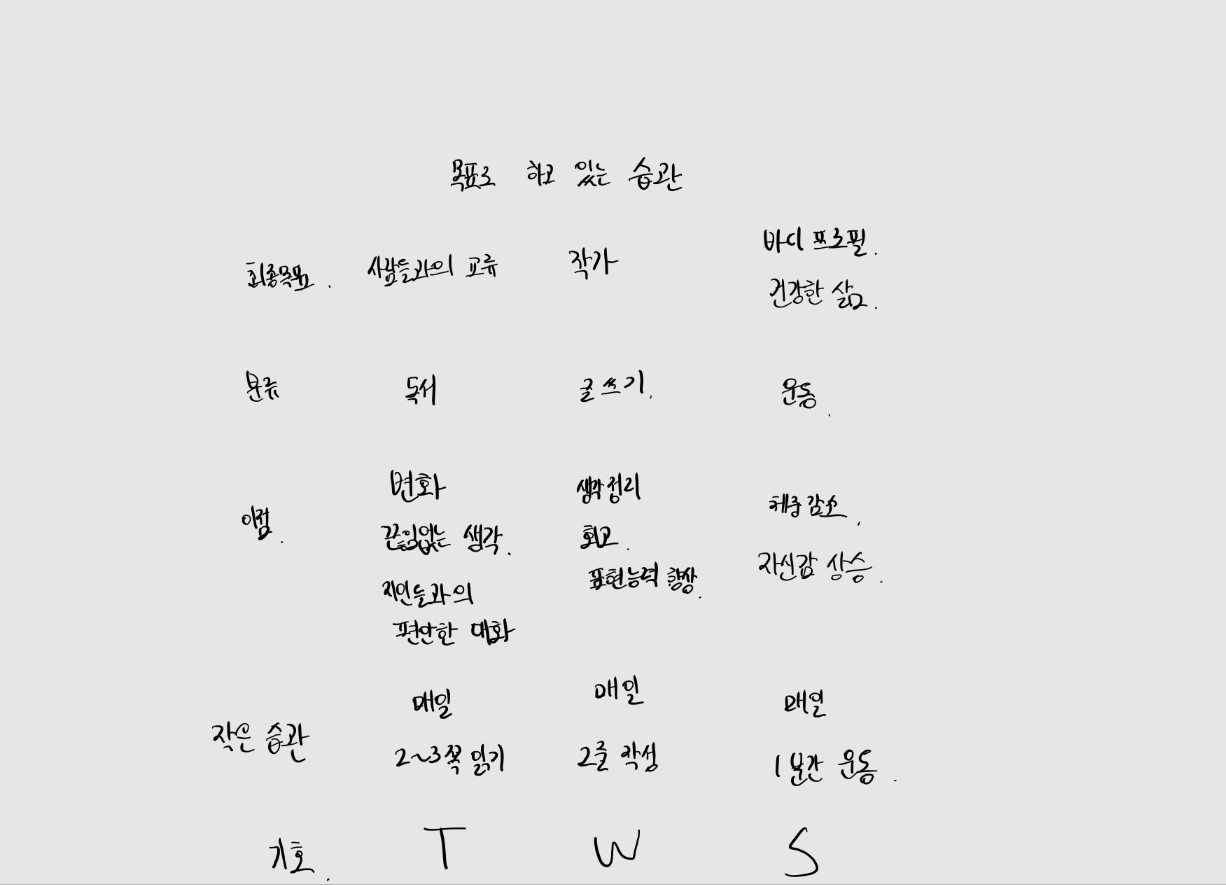 목표로 하고 있는 습관
최종목표. 사람들과의 교류 작가 바디 프로필.
건강한 삶.
분류 독서 글쓰기. 운동.
이점. 변화 생각정리 체중감소.
끊임없는 생각. 회고. 자신감 상승.
지인들과의 표현능력 향상.
편안한 대화
작은 습관 매일 매일 매일
2~3쪽 읽기 2줄 작성 1분간 운동.
기호. T W S